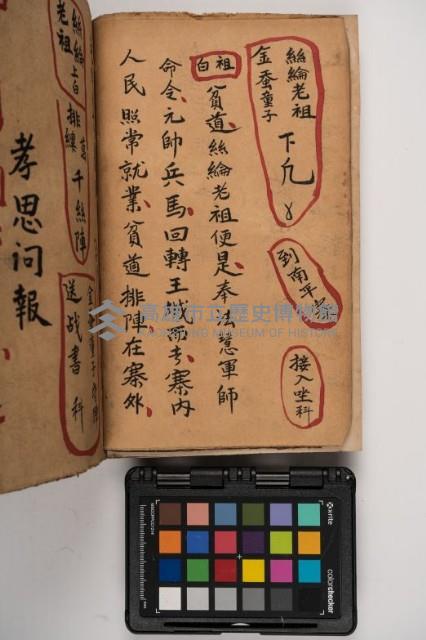 絲綸老祖
金蚕童子
下凢
到南平寨
接入坐科
祖白
貧道絲綸老祖便是奉弘慧軍師
命令元帥兵馬回轉王城 寨內
人民照常就業貧道排陣在寨外
絲綸上白
老祖
排 千絲陣
送战書科
孝思问報
高雄市立歷史博物館
KAOHSIUNG MUSEUM OF HISTORY
x-rite
colorchecker